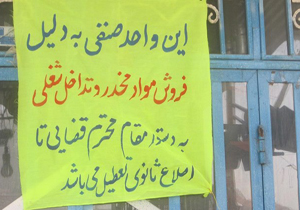 این واحد صنفی به دلیل
فروش مواد مخدر و تداخل شغلی
به دستور مقام محترم قضایی تا
اطلاع ثانوی تعطیل می باشد